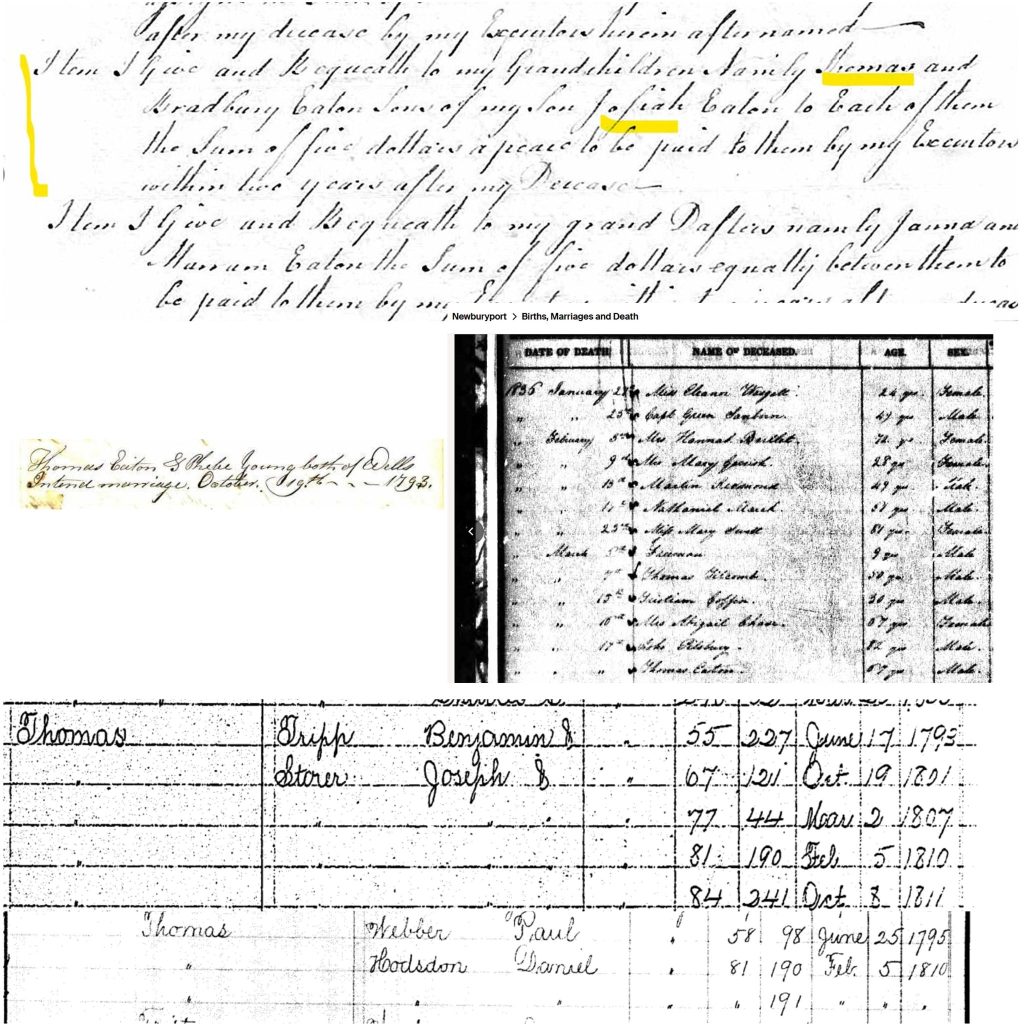 after my decease by my Executors herein after named
Item I Give and Bequeath to my Grandchildren Namly Thomas and
Bradbury Eaton Sons of my Son Josiah Eaton to Each of them
the Sum of five dollars apeace to be paid to them by my Executors
within two years after my Decease
Item I Give and Bequeath to my grand Dafters namly Janna and
Marram Eaton the Sum of five dollars equally between them to
be paid to them by my
Newburyport > Births, Marriages and Death
DATE OF DEATH NAME OF DECEASED. AGE. SEX.
1836 January Miss Eleanor 24 yrs Female
" " 25th Capt Green Sanborn 47 yrs Male
" February 5th Mrs Hannah Bartlet 74 yrs Female
" " 9th Mrs Mary Gerrish 28 yrs Female
" " 10th Martin 49 yrs Male
" " Nathaniel March 57 yrs Male
" " 25th Miss Mary 81 yrs Female
" March 5th Freeman 9 yrs Male
" " 7th Thomas Titcomb 50 yrs Male
" " 15th Tristram Coffin 30 yrs Male
" " 16th Mrs Abigail Chase 67 yrs Female
" " 17th John Pilsbury 82 yrs Male
" " " Thomas Eaton 67 yrs Male
Thomas Eaton & Phebe Young both of Wells
Intend marriage. October. 19th - - - 1793.
Thomas Tripp Benjamin & " 55 227 June 17 1793
" Storer Joseph & " 67 121 Oct 19 1801
" " " " " 77 44 Mar 2 1807
" 81 190 Feb 5 1810
84 241 Oct 8 1811
Thomas Webber Paul " 58 98 June 25 1795
" Hodsdon Daniel " 81 190 Feb. 5 1810
" " " " " 191 " " "